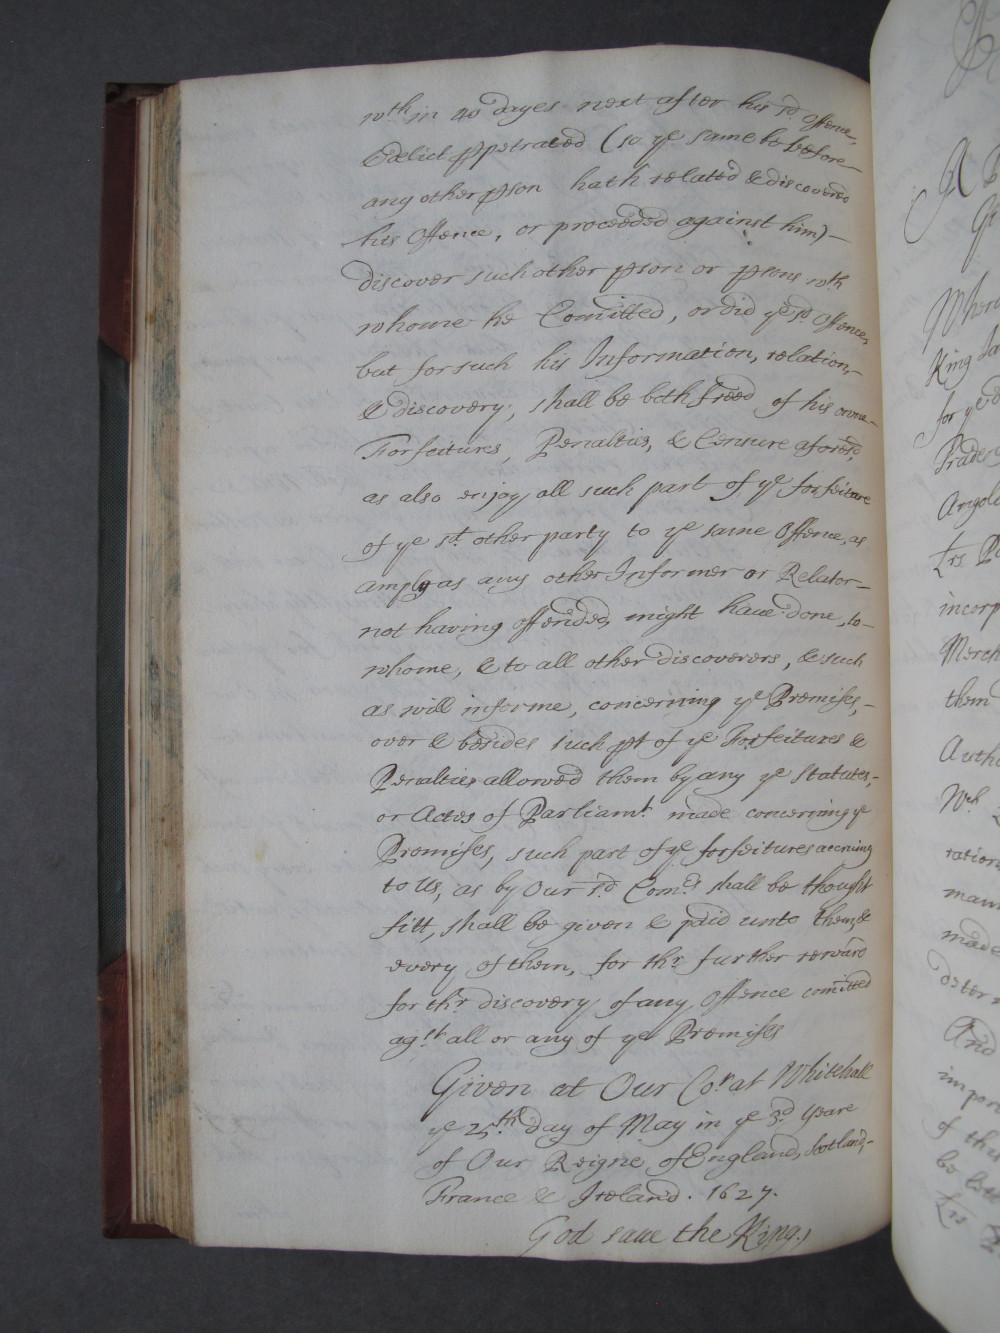 wth in 40 dayes next after his sd. Offence,
& delict ppetrated (so ye same be before
any other pson hath related & discovered
his Offence, or proceeded against him) —
discover such other pson or psons wth
whome he Comitted, or did ye sd. Offence,
but for such his Information, relation,
& discovery, shall be both freed of his owne
Forfeitures, Penalties, & Censure aforesd,
as also enjoy all such part of ye forfeiture
of ye sd. other party to ye same Offence, as
amply as any other Informer or Relator —
not having offended, might have done, to —
whome, & to all other discoverers, & such
as will informe, concerning ye Premises, —
over & besides such pt of ye Forfeitures &
Penalties allowed them by any ye Statutes, —
or Actes of Parliamt. made concerning ye
Premises, such part of ye forfeitures accruing
to Us, as by Our sd. Comrs shall be thought
fitt, shall be given & paid unto them, &
every of them, for thr. further reward
for thr discovery of any Offence comitted
agst. all or any of ye Premises
Given at Our Cort at Whitehall
ye 25th. day of May in ye 3d. yeare
of Our Reigne, of England, Scotland, —
France & Ireland. 1627.
God save the King,
A
Where
King
for ye
Traders
Lrs
incorp
Merch
them
Autho
Wch
ration
mann
made
deter
And
impor
of this
be
Lrs